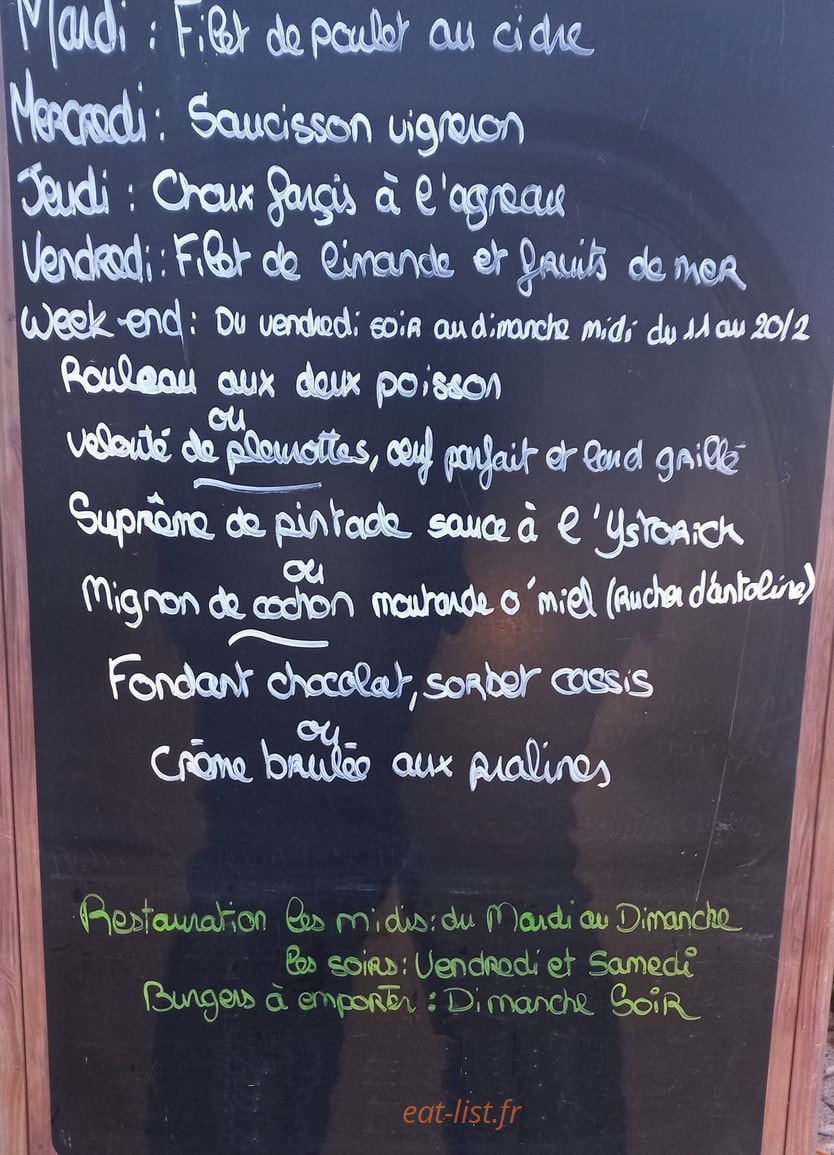 Mardi : Filet de poulet au cidre
Mercredi : Saucisson vigneron
Jeudi : Choux farçis à l'agneau
Vendredi : Filet de limande et fruits de mer
Week-end : Du vendredi soir au dimanche midi du 11 au 20/2
Rouleau aux deux poisson
ou
Velouté de pleurottes, œuf parfait et lard grillé
Suprême de pintade sauce à l'Ystorick
ou
Mignon de cochon moutarde o'miel (Rucher d'antoline)
Fondant chocolat, sorbet cassis
ou
Crème brulée aux pralines
Restauration les midis : du Mardi au Dimanche
les soirs : Vendredi et Samedi
Burgers à emporter : Dimanche Soir
eat-list.fr